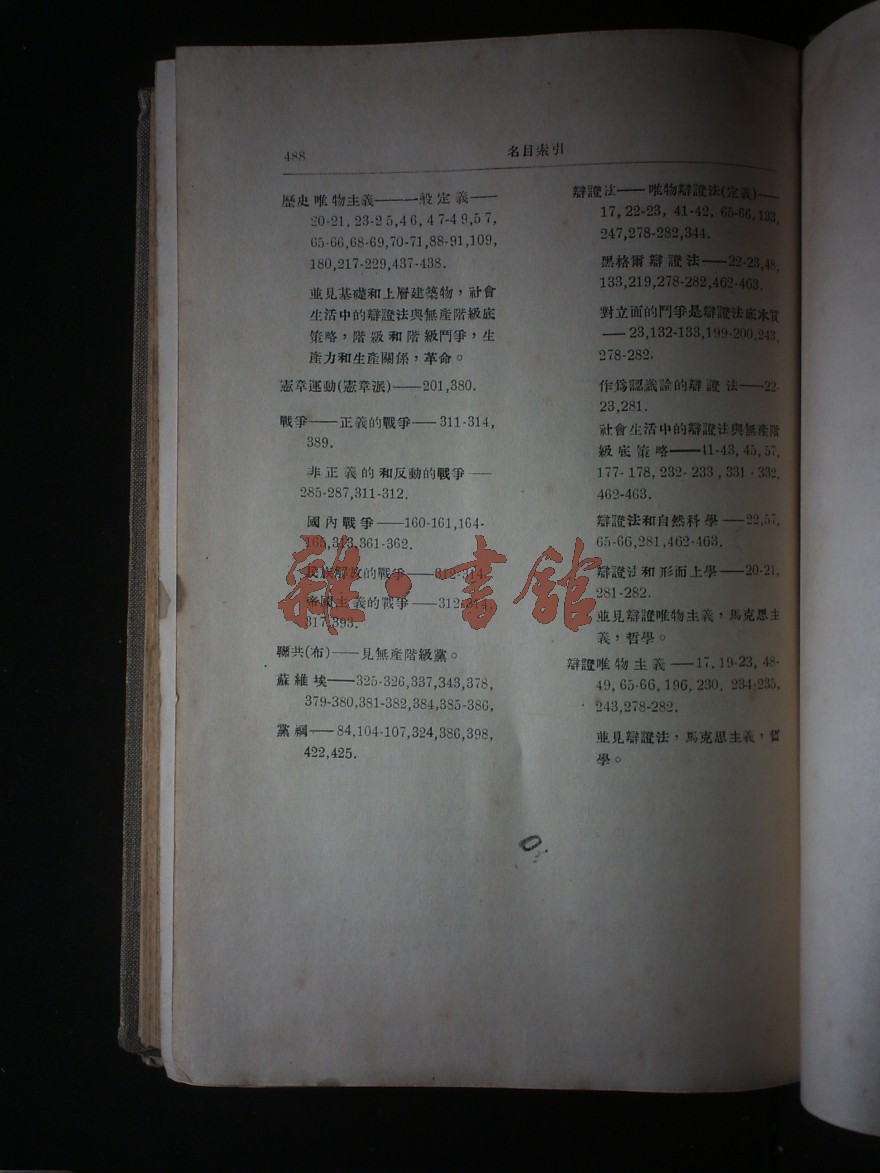 488
名目索引
歷史唯物主義———一般定義——
20-21, 23-25,46, 47-49,57,
65-66,68-69,70-71,88-91,109,
180,217-229,437-438.
並見基礎和上層建築物，社會
生活中的辯證法與無產階級底
策略，階級和階級鬥爭，生
產力和生產關係，革命。
憲章運動(憲章派)——201,380.
戰爭——正義的戰爭——311-314,
389.
非正義的和反動的戰爭——
285-287,311-312.
國內戰爭——160-161,164-
165,313,361-362.
民族解放的戰爭——312-314.
帝國主義的戰爭——312-314,
317,393.
聯共(布)——見無產階級黨。
蘇維埃——325-326,337,343,378,
379-380,381-382,384,385-386,
黨綱——84,104-107,324,386,398,
422,425.
辯證法——唯物辯證法(定義)——
17, 22-23, 41-42, 65-66,133,
247,278-282,344.
黑格爾辯證法——22-23,48,
133,219,278-282,462-463.
對立面的鬥爭是辯證法底本質
——23,132-133,199-200,243,
278-282.
作為認識論的辯證法——22-
23,281.
社會生活中的辯證法與無產階
級底策略——41-43, 45,57,
177-178, 232-233, 331-332,
462-463.
辯證法和自然科學——22,57,
65-66,281,462-463.
辯證法和形而上學——20-21,
281-282.
並見辯證唯物主義，馬克思主
義，哲學。
辯證唯物主義——17, 19-23, 48-
49, 65-66, 196, 230, 234-235,
243,278-282.
並見辯證法，馬克思主義，哲
學。
雜·書館